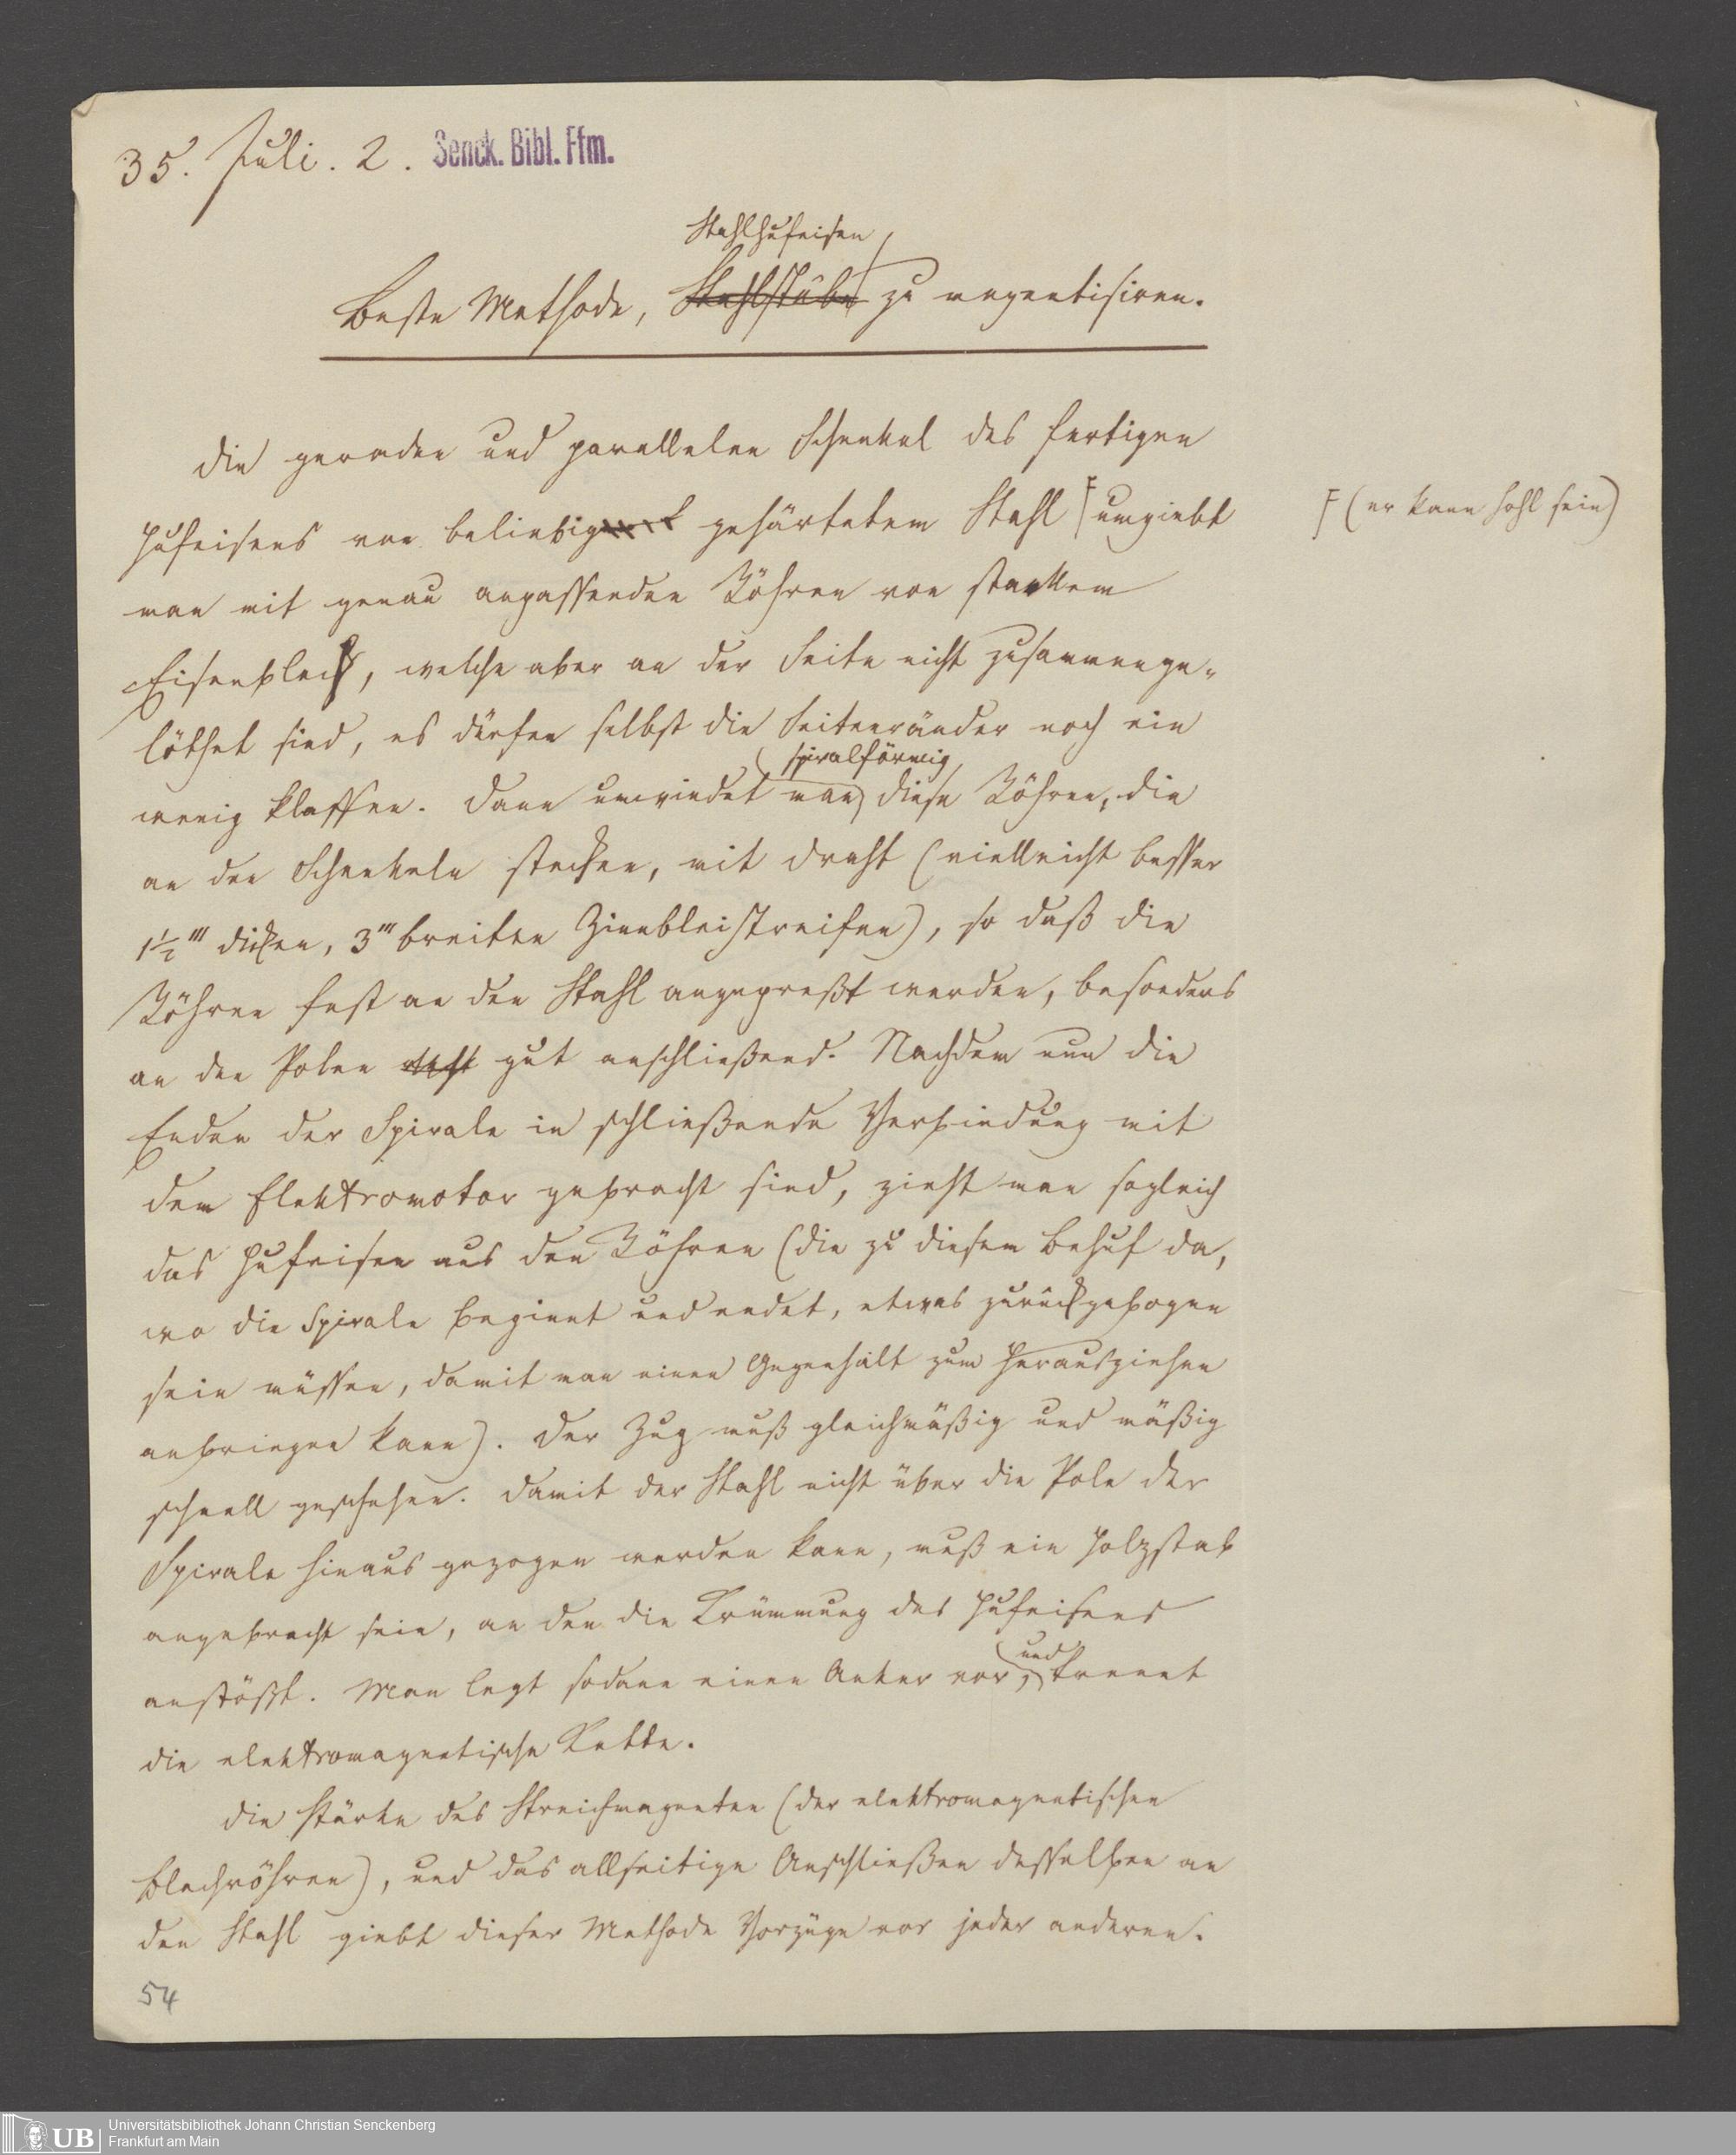 35. Juli. 2. Senck. Bibl. Ffm.
Stahlhufeisen
Beste Methode, Stahlstäbe zu magnetisiren.
Die geraden und parallelen Schenkel des fertigen
Hufeisens von beliebig gehärtetem Stahl F umgiebt
F (er kann hohl sein)
man mit genau anpassenden Röhren von starkem
Eisenblech, welche aber an der Seite nicht zusammenge-
löthet sind, es dürfen selbst die Seitenränder noch ein
spiralförmig
wenig klaffen. Dann umwindet man diese Röhren, die
an den Schenkeln stecken, mit Draht (vielleicht besser
1½''' dicken, 3''' breiten Zinnbleistreifen), so daß die
Röhren fest an den Stahl angepreßt werden, besonders
an den Polen gut anschließend. Nachdem nun die
Enden der Spirale in schließende Verbindung mit
dem Elektromotor gebracht sind, zieht man sogleich
das Hufeisen aus den Röhren (die zu diesem Behuf da,
wo die Spirale beginnt und endet, etwas zurückgebogen
sein müssen, damit man einen Gegenhalt zum Herausziehen
anbringen kann). Der Zug muß gleichmäßig und mäßig
schnell geschehen. Damit der Stahl nicht über die Pole der
Spirale hinaus gezogen werden kann, muß ein Holzstab
angebracht sein, an den die Krümmung des Hufeisens
anstößt. Man legt sodann einen Anker vor, und trennt
die elektromagnetische Kette.
Die Stärke des Streichmagneten (der elektromagnetischen
Blechröhren), und das allseitige Anschließen desselben an
den Stahl giebt dieser Methode Vorzüge vor jeder anderen.
54
UB Universitätsbibliothek Johann Christian Senckenberg
Frankfurt am Main